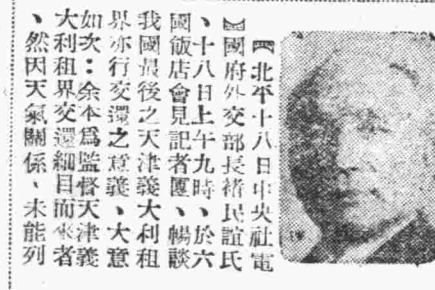 【北平十八日中央社電
】國府外交部長褚民誼氏
、十八日上午九時、於六
國飯店會見記者團、暢談
我國最後之天津義大利租
界亦行交還之意義、大意
如次：余本爲監督天津義
大利租界交還細目而來者
、然因天氣關係、未能列